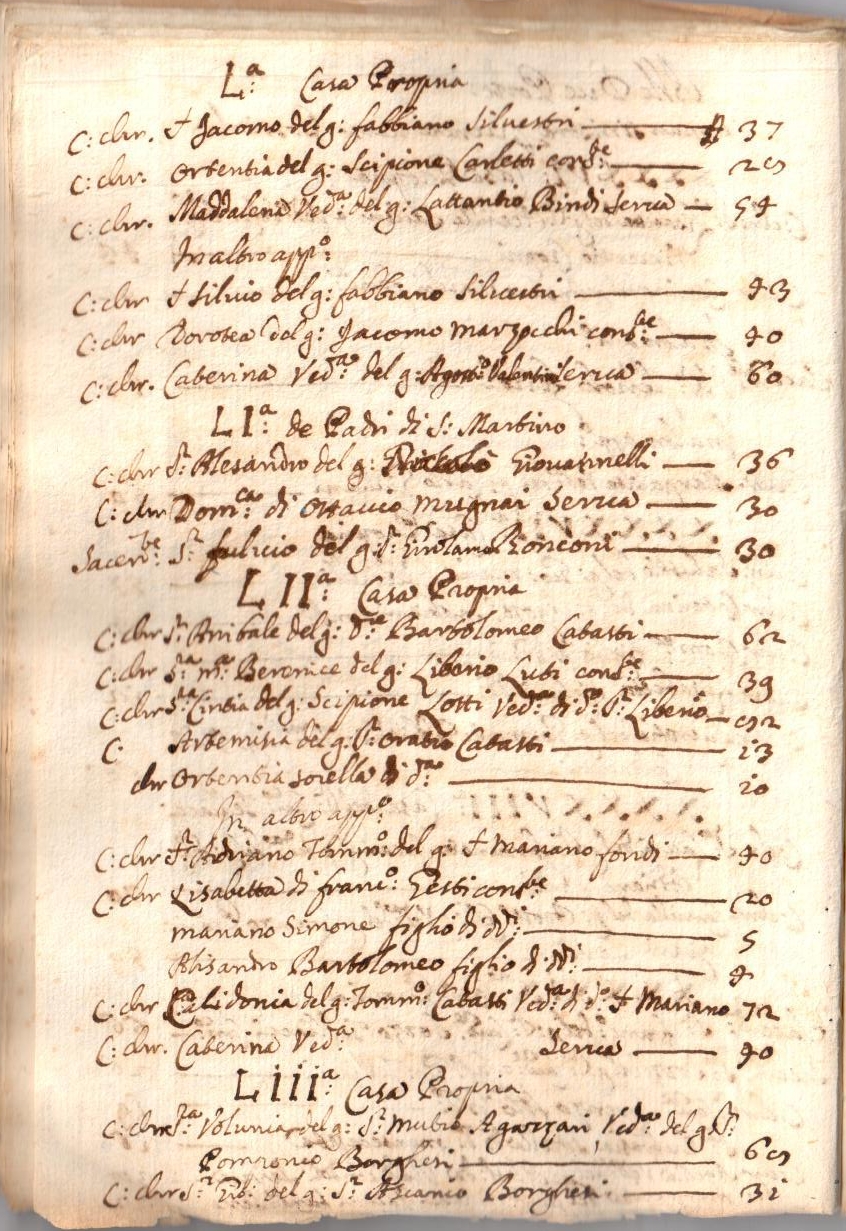 L.ª Casa Propria
C: chr. † Jacomo del q: fabbiano Silvestri — 37
C: chr. Ortentia del q: Scipione Carletti cons.te —
C: chr. Maddalena Ved.ª del q: Lattantio Bindi Serva — 54
In altro app.º:
C: chr † Silvio del q: fabbiano Silvestri — 43
C: chr Dorotea del q: Jacomo Marzocchi cons.te — 40
C: chr. Caterina Ved.ª del q: Agost.º Valentini Serva — 60
LI.ª de Padri di S: Martino
C: chr S.r Alesandro del q: Giovannelli — 36
C: chr Dom.ca di Ottavio Mugnai Serva — 30
Sacer.te S.r fulvio del q: S.r Girolamo Ronconi — 30
LII.ª Casa Propria
C: chr S.r Anibale del q: Bartolomeo Cabatti — 62
C: chr S.ra M.ª Berenice del q: Liberio Luti cons.te — 39
C: chr S.ra Cintia del q: Scipione Lotti Ved.ª di d.º S.r Liberio
C. Artemisia del q: S.r Oratio Cabatti — 13
chr Ortentia sorella di d.ª — 10
In altro app.º:
C: chr Adriano Tomm.º: del q: † Mariano fondi — 40
C: chr Lisabetta di franc.º: Testi cons.te — 20
Mariano Simone figlio di dd.i: — 5
Alisandro Bartolomeo figlio di dd.i: — 4
C: chr Calidonia del q: Tomm.º: Cabatti Ved.ª di d.º † Mariano 72
C: chr. Caterina Ved.ª Serva — 40
LIII.ª Casa Propria
C: chr S.ra Volunia del q: S.r Mutio Agazzari Ved.ª del q: S.r
Pomponio Borghesi —
C: chr S.r Gio: del q: S.r Ascanio Borghesi — 31